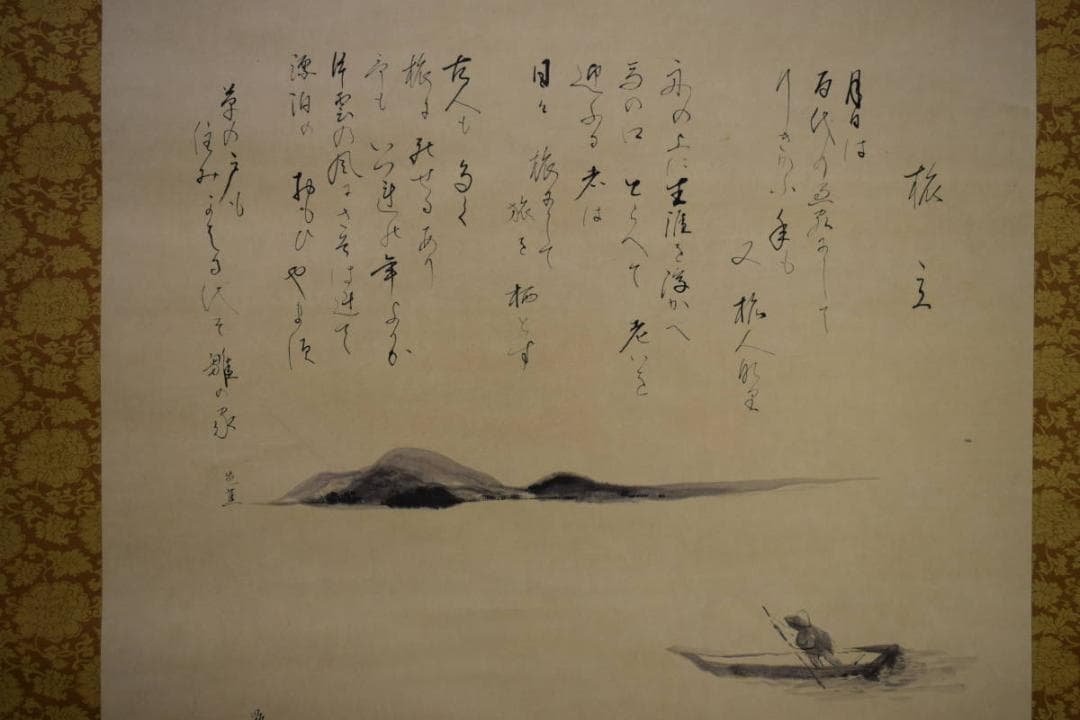 旅立
月日は
百代の過客にして
行きかふ年も
又旅人那里
舟の上に生涯を浮かへ
馬の口とらへて老いを
迎ふる者は
日々旅にして
旅を栖とす
古人も多く
旅に死せるあり
予もいつ連の年よりか
片雲の風にさそは連て
漂泊の おもひやま須
草の戸も
住み可はる代そ雛の家
芭蕉